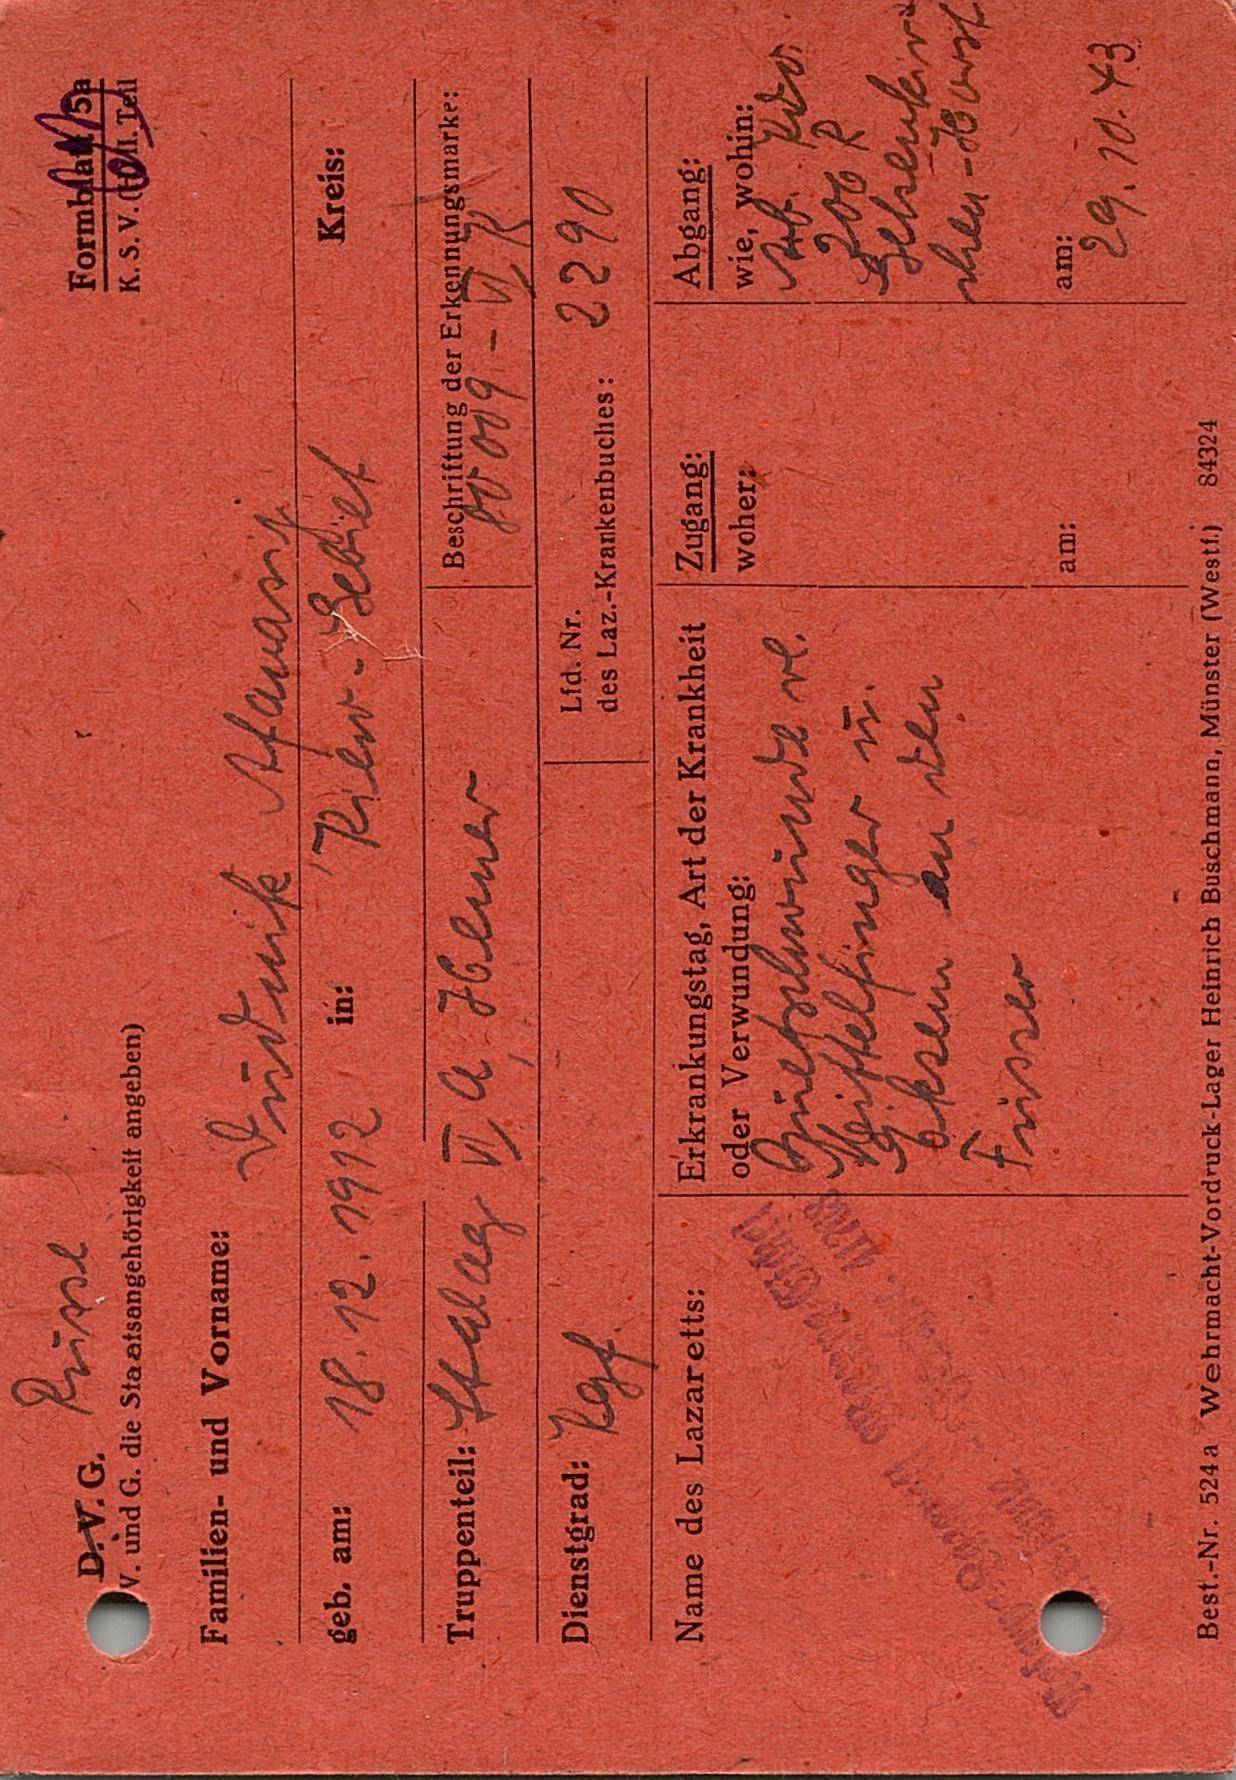 D. V. G. Russe
V. und G. die Staatsangehörigkeit angeben)
Formblatt 5a
K. S. V. II. Teil
Familien- und Vorname: Dudnik Afanasij
geb. am: 18.12.1912 in: Kiew-Gebiet Kreis:
Truppenteil: Stalag VI A, Hemer
Beschriftung der Erkennungsmarke:
80009 - VI K
Dienstgrad: Kgf.
Lfd. Nr.
des Laz.-Krankenbuches: 2290
Name des Lazaretts:
Erkrankungstag, Art der Krankheit
oder Verwundung:
Quetschwunde rl.
Mittelfinger u.
Eksem an den
Füsser
Zugang:
woher:
am:
Abgang:
wie, wohin:
Arb. Kdo.
206 R
Gelsenkir-
chen-Horst
am:
29.10.43
Best.-Nr. 524a Wehrmacht-Vordruck-Lager Heinrich Buschmann, Münster (Westf.) 84324